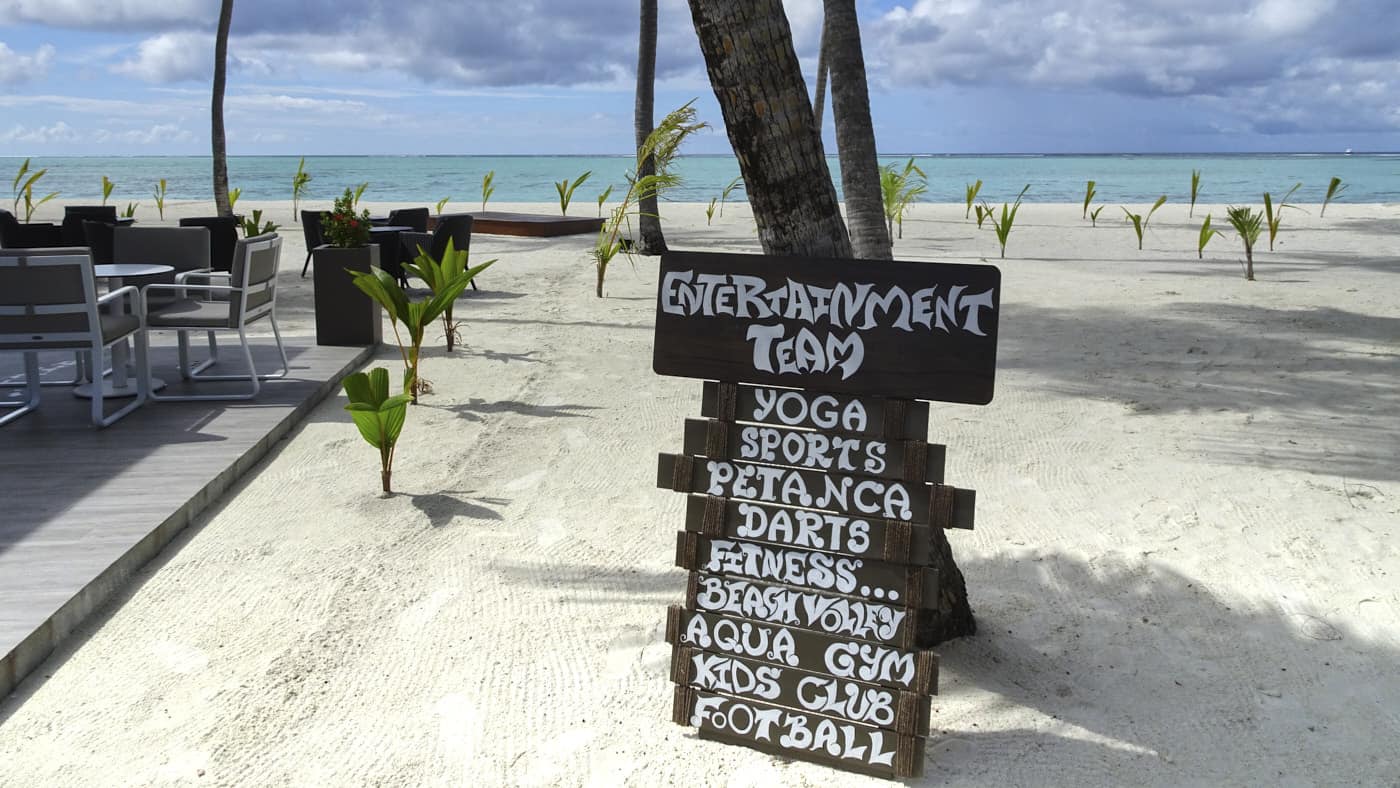 ENTERTAINMENT
TEAM
YOGA
SPORTS
PETANCA
DARTS
FITNESS...
BEACH VOLLEY
AQUA GYM
KIDS CLUB
FOOTBALL